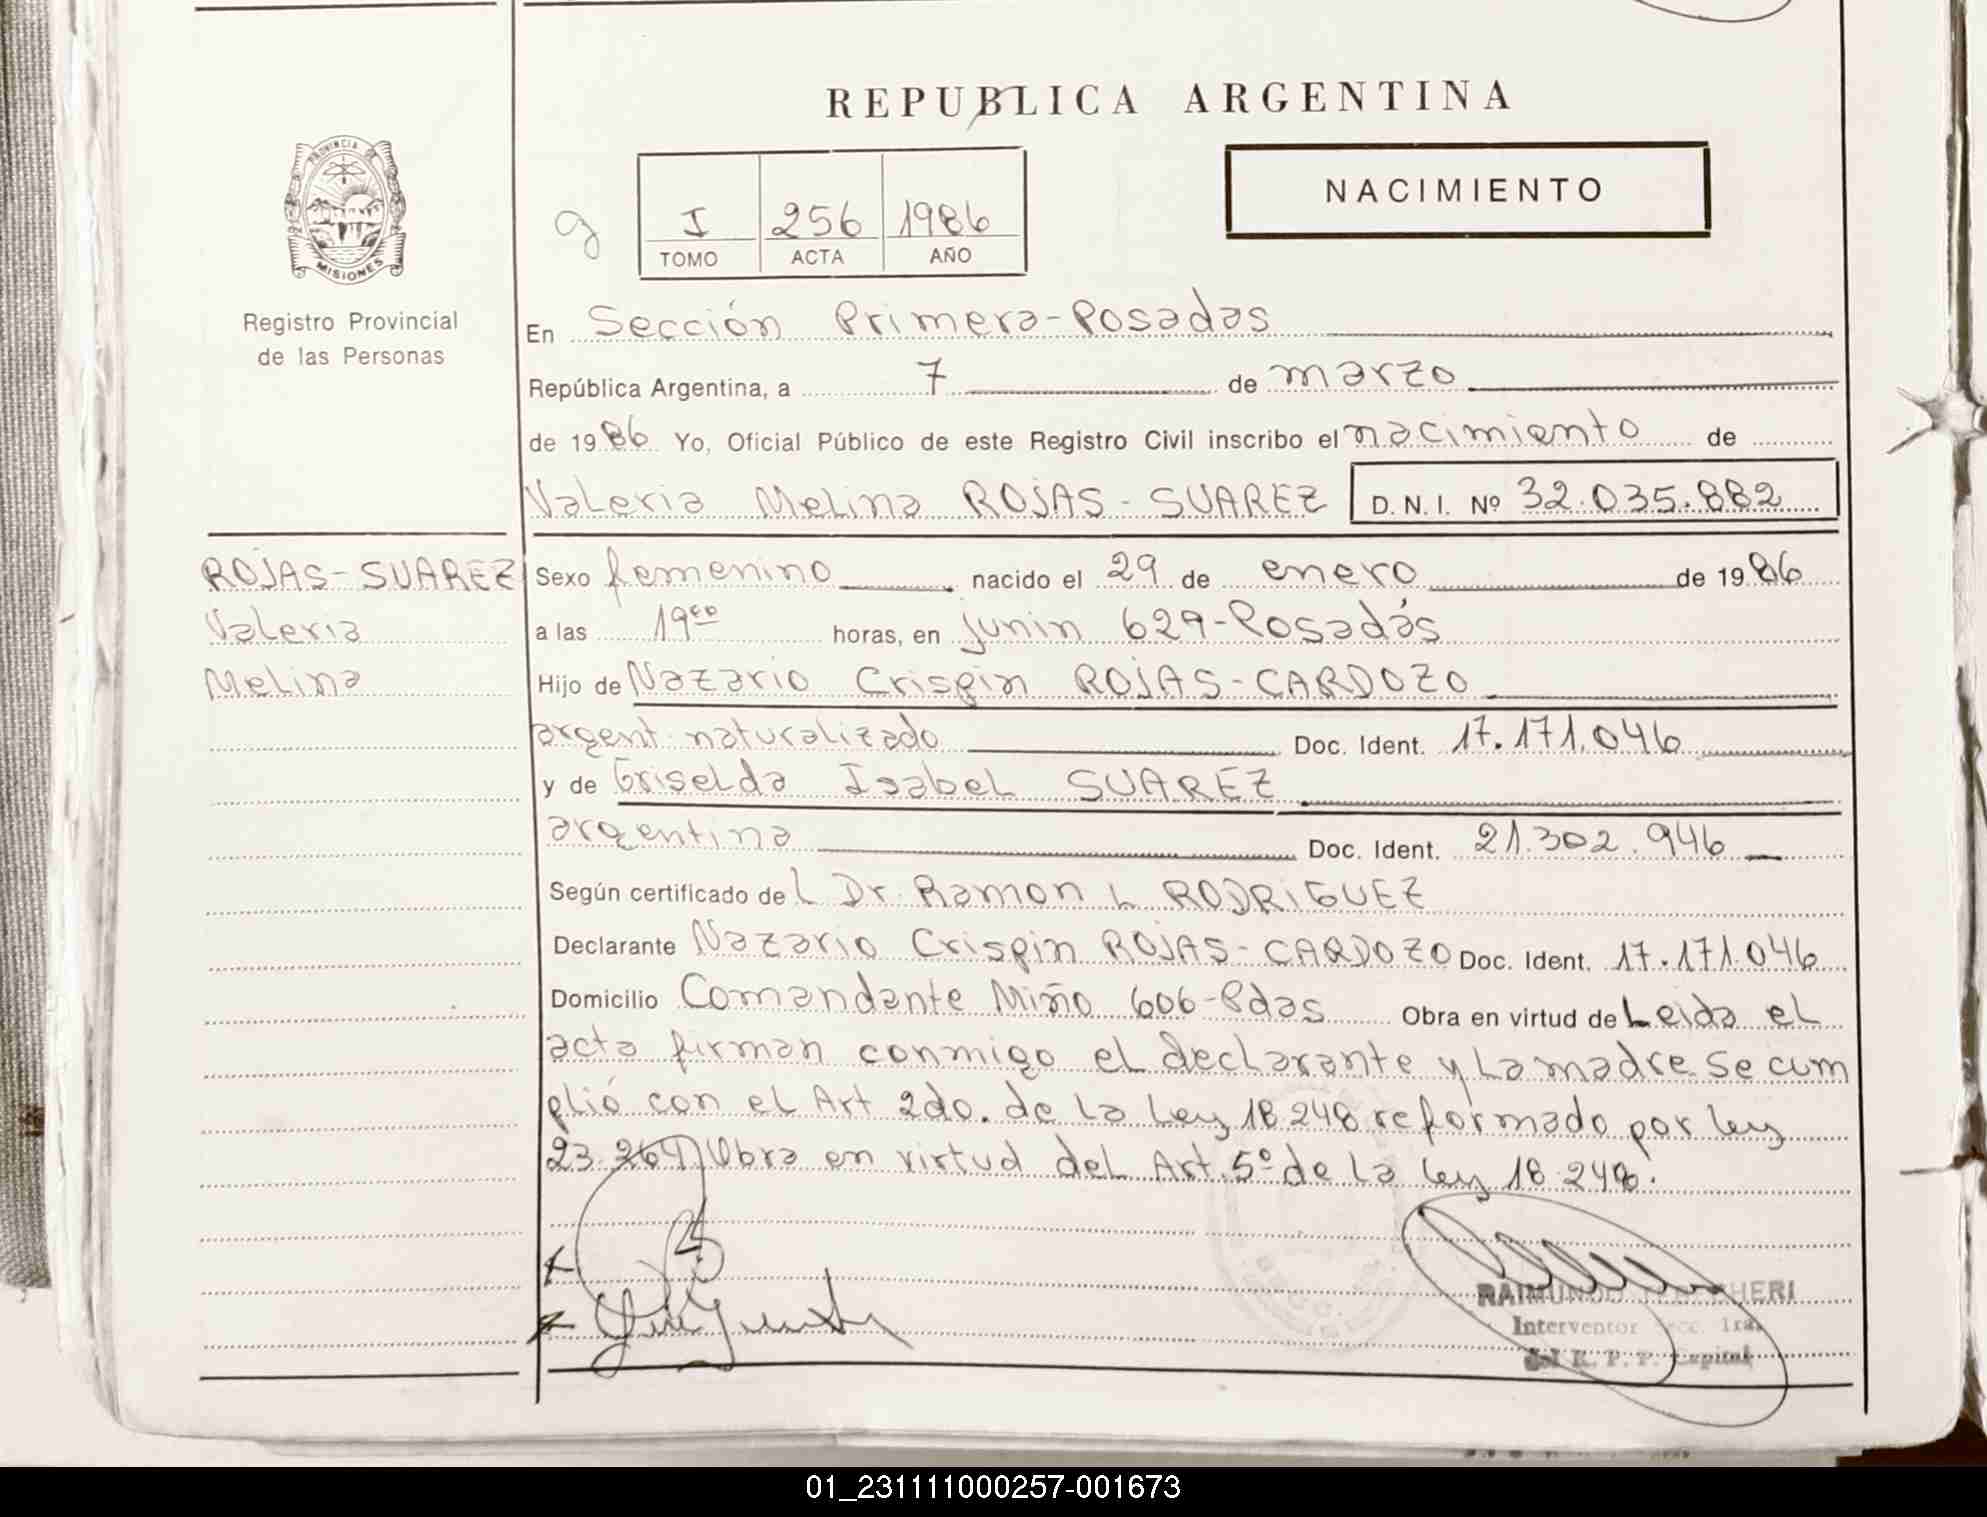 REPUBLICA ARGENTINA
PROVINCIA DE
MISIONES
Registro Provincial
de las Personas
I 256 1986
TOMO ACTA AÑO
NACIMIENTO
En Sección Primera-Posadas
República Argentina, a 7 de marzo
de 1986 Yo, Oficial Público de este Registro Civil inscribo el nacimiento de
Valeria Melina ROJAS-SUAREZ D.N.I. Nº 32.035.882
ROJAS-SUAREZ
Valeria
Melina
Sexo femenino nacido el 29 de enero de 1986
a las 19⁰⁰ horas, en Junin 629-Posadas
Hijo de Nazario Crispin ROJAS-CARDOZO
argent. naturalizado Doc. Ident. 17.171.046
y de Griselda Isabel SUAREZ
argentina Doc. Ident. 21.302.946
Según certificado del Dr. Ramon L RODRIGUEZ
Declarante Nazario Crispin ROJAS-CARDOZO Doc. Ident. 17.171.046
Domicilio Comandante Miño 606-Pdas Obra en virtud de Leida el
acta firman conmigo el declarante y La madre. Se cum
plió con el Art 2do. de La Ley 18.248 reformado por ley
23.264 Obra en virtud del Art. 5º de la ley 18.248.
RAIMUNDO
Interventor Secc. 1ra.
del R. P. P. Capital
01_231111000257-001673